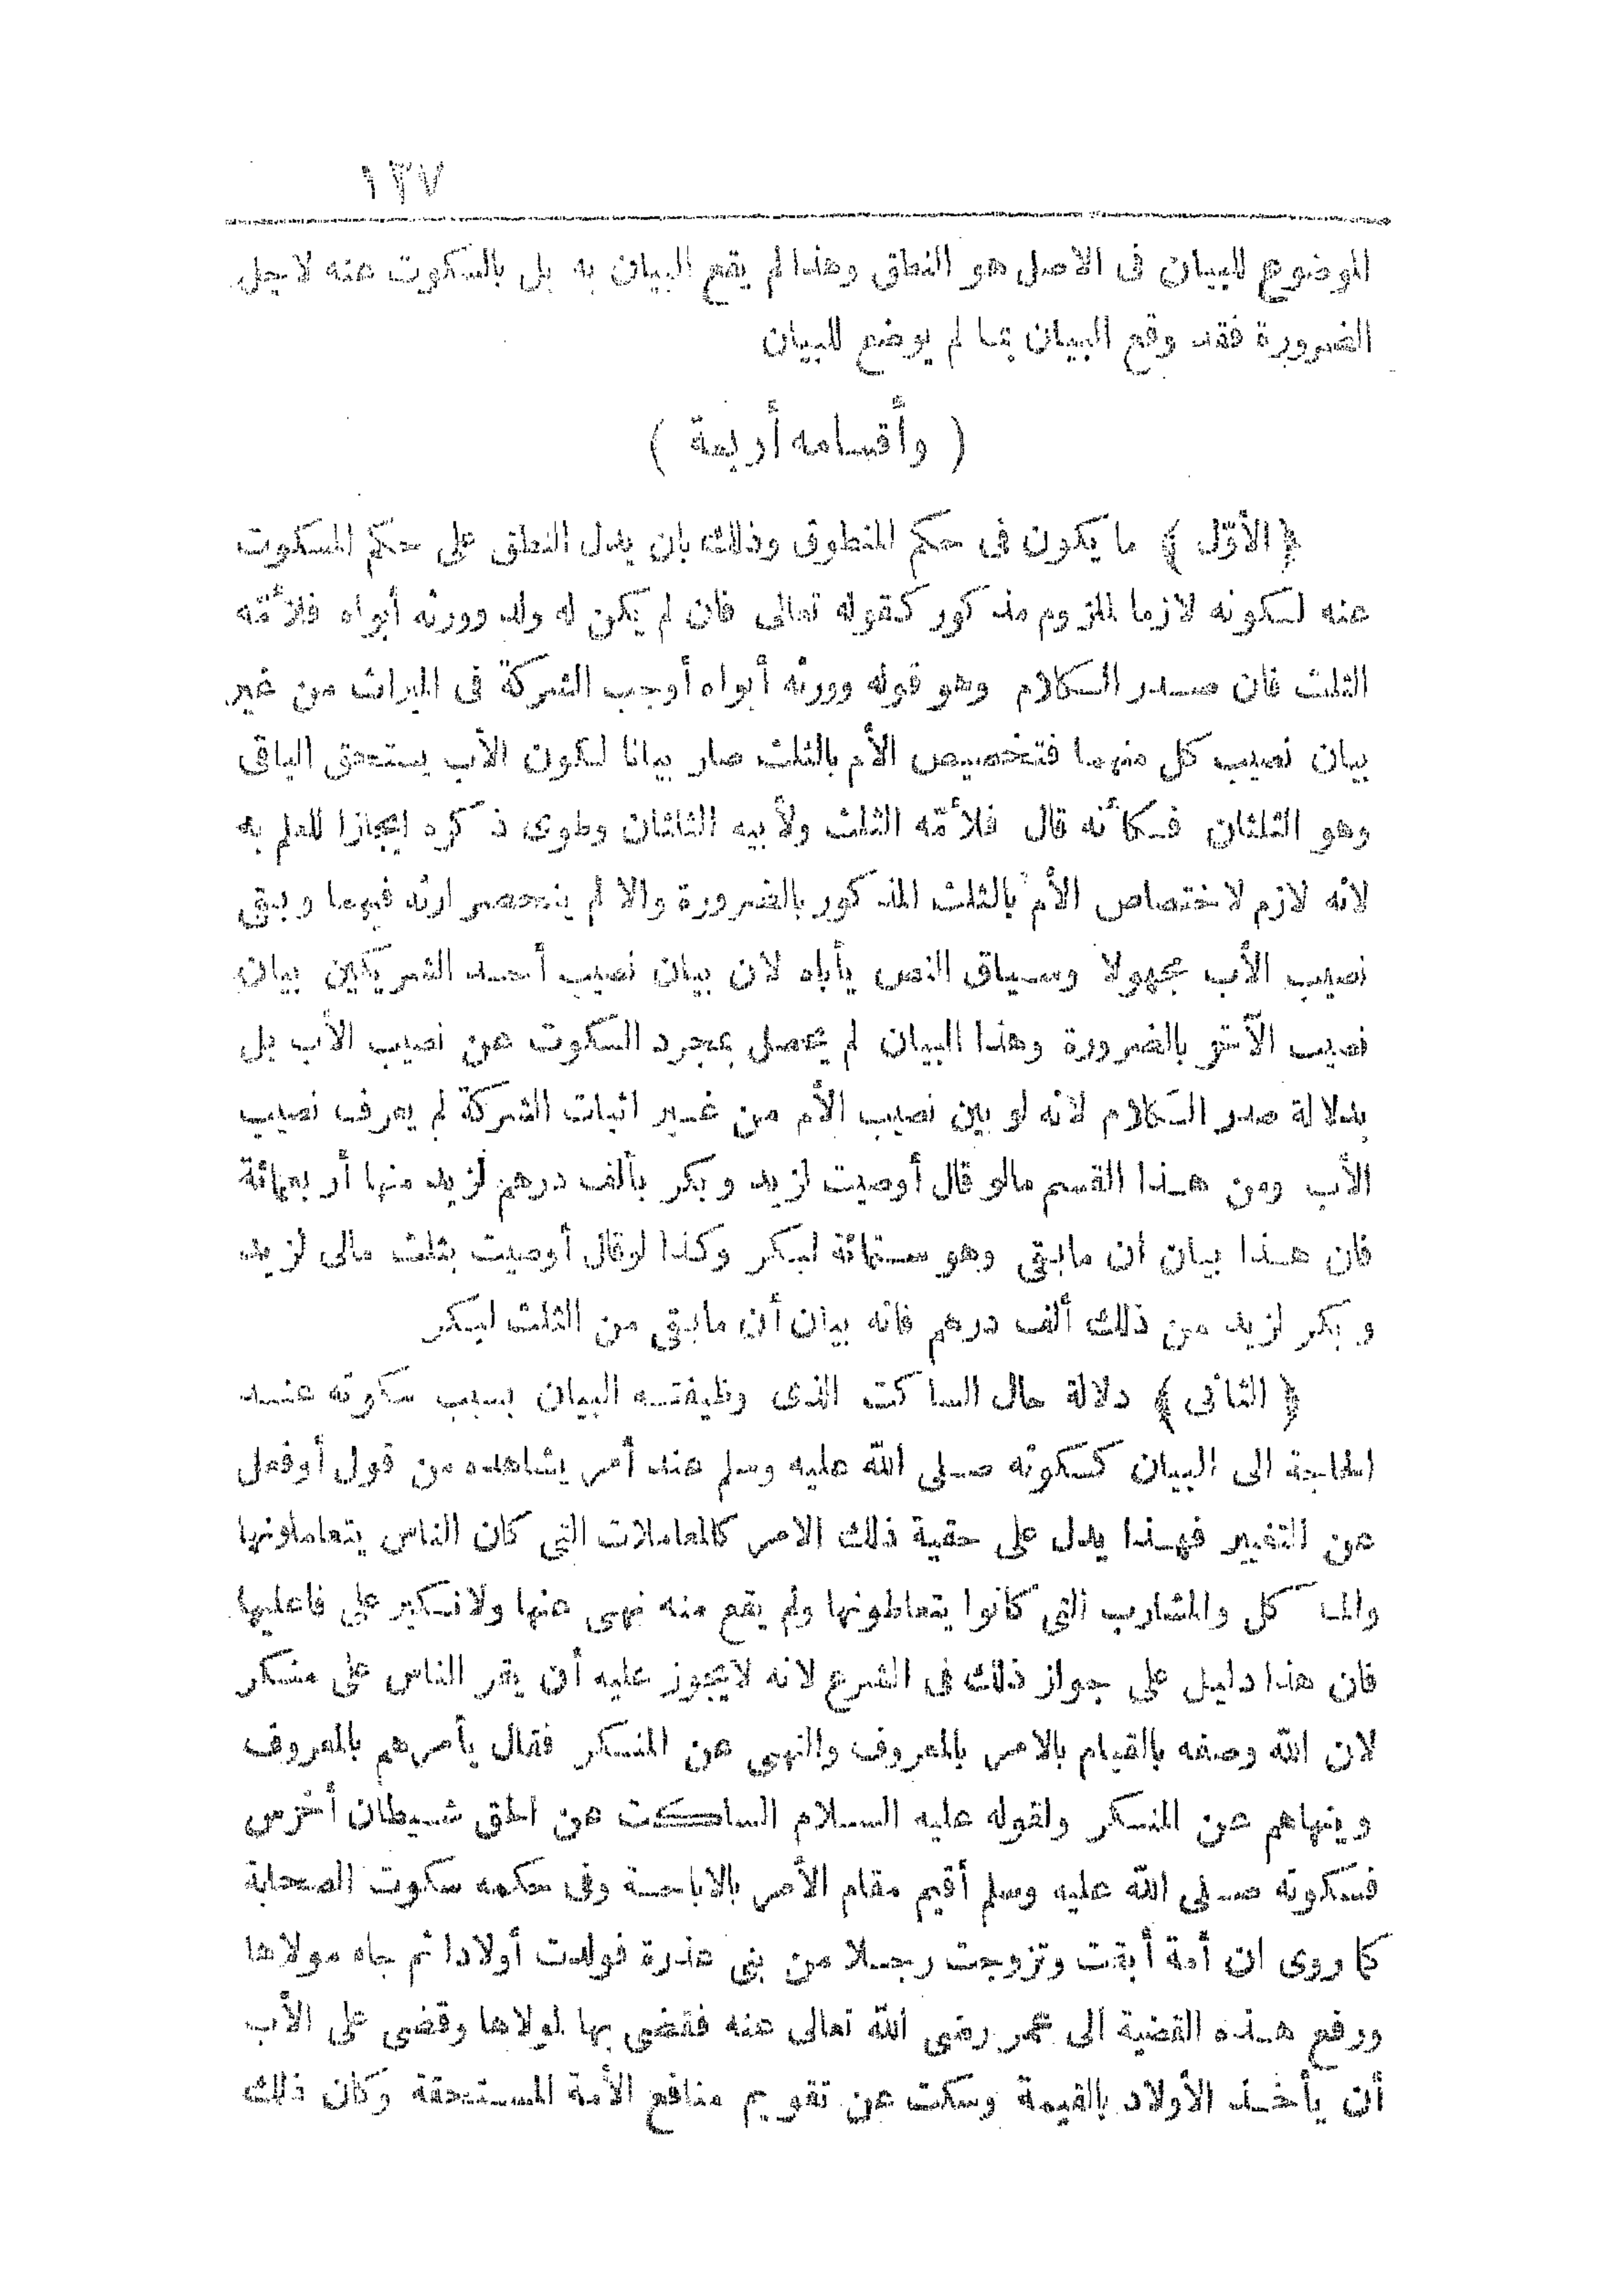 ١٣٧
الموضوع للبيان فى الاصل هو النطق وهذا لم يقع البيان به بل بالسكوت عنه لاجل
الضرورة فقد وقع البيان بما لم يوضع للبيان
( وأقسامه أربعة )
﴿ الأوّل ﴾ ما يكون فى حكم المنطوق وذلك بان يدل النطق على حكم المسكوت
عنه لكونه لازما لملزوم مذكور كقوله تعالى فان لم يكن له ولد وورثه أبواه فلأمّه
الثلث فان صدر الكلام وهو قوله وورثه أبواه أوجب الشركة فى الميراث من غير
بيان نصيب كل منهما فتخصيص الأم بالثلث صار بيانا لكون الأب يستحق الباقى
وهو الثلثان فكأنه قال فلأمّه الثلث ولأبيه الثلثان وطوى ذكره ايجازا للعلم به
لانه لازم لاختصاص الأم بالثلث المذكور بالضرورة والا لم ينحصر ارثه فيهما وبقى
نصيب الأب مجهولا وسياق النص يأباه لان بيان نصيب أحد الشريكين بيان
نصيب الآخر بالضرورة وهذا البيان لم يحصل بمجرد السكوت عن نصيب الأب بل
بدلالة صدر الكلام لانه لو بين نصيب الأم من غير اثبات الشركة لم يعرف نصيب
الأب ومن هذا القسم مالو قال أوصيت لزيد وبكر بألف درهم لزيد منها أربعمائة
فان هذا بيان ان مابقى وهو ستمائة لبكر وكذا لوقال أوصيت بثلث مالى لزيد
وبكر لزيد من ذلك ألف درهم فانه بيان أن مابقى من الثلث لبكر
﴿ الثانى ﴾ دلالة حال الساكت الذى وظيفته البيان بسبب سكوته عند
الحاجة الى البيان كسكوته صلى الله عليه وسلم عند أمر يشاهده من قول أوفعل
عن التغيير فهذا يدل على حقية ذلك الامر كالمعاملات التى كان الناس يتعاملونها
والمآكل والمشارب التى كانوا يتعاطونها ولم يقع منه نهى عنها ولانكير على فاعليها
فان هذا دليل على جواز ذلك فى الشرع لانه لايجوز عليه أن يقر الناس على منكر
لان الله وصفه بالقيام بالامر بالمعروف والنهى عن المنكر فقال يأمرهم بالمعروف
وينهاهم عن المنكر ولقوله عليه السلام الساكت عن الحق شيطان أخرس
فسكوته صلى الله عليه وسلم أقيم مقام الأمر بالاباحة وفى حكمه سكوت الصحابة
كما روى ان أمة أبقت وتزوجت رجلا من بنى عذرة فولدت أولادا ثم جاء مولاها
ورفع هذه القضية الى عمر رضى الله تعالى عنه فقضى بها لمولاها وقضى على الأب
أن يأخذ الأولاد بالقيمة وسكت عن تقويم منافع الأمة المستحقة وكان ذلك